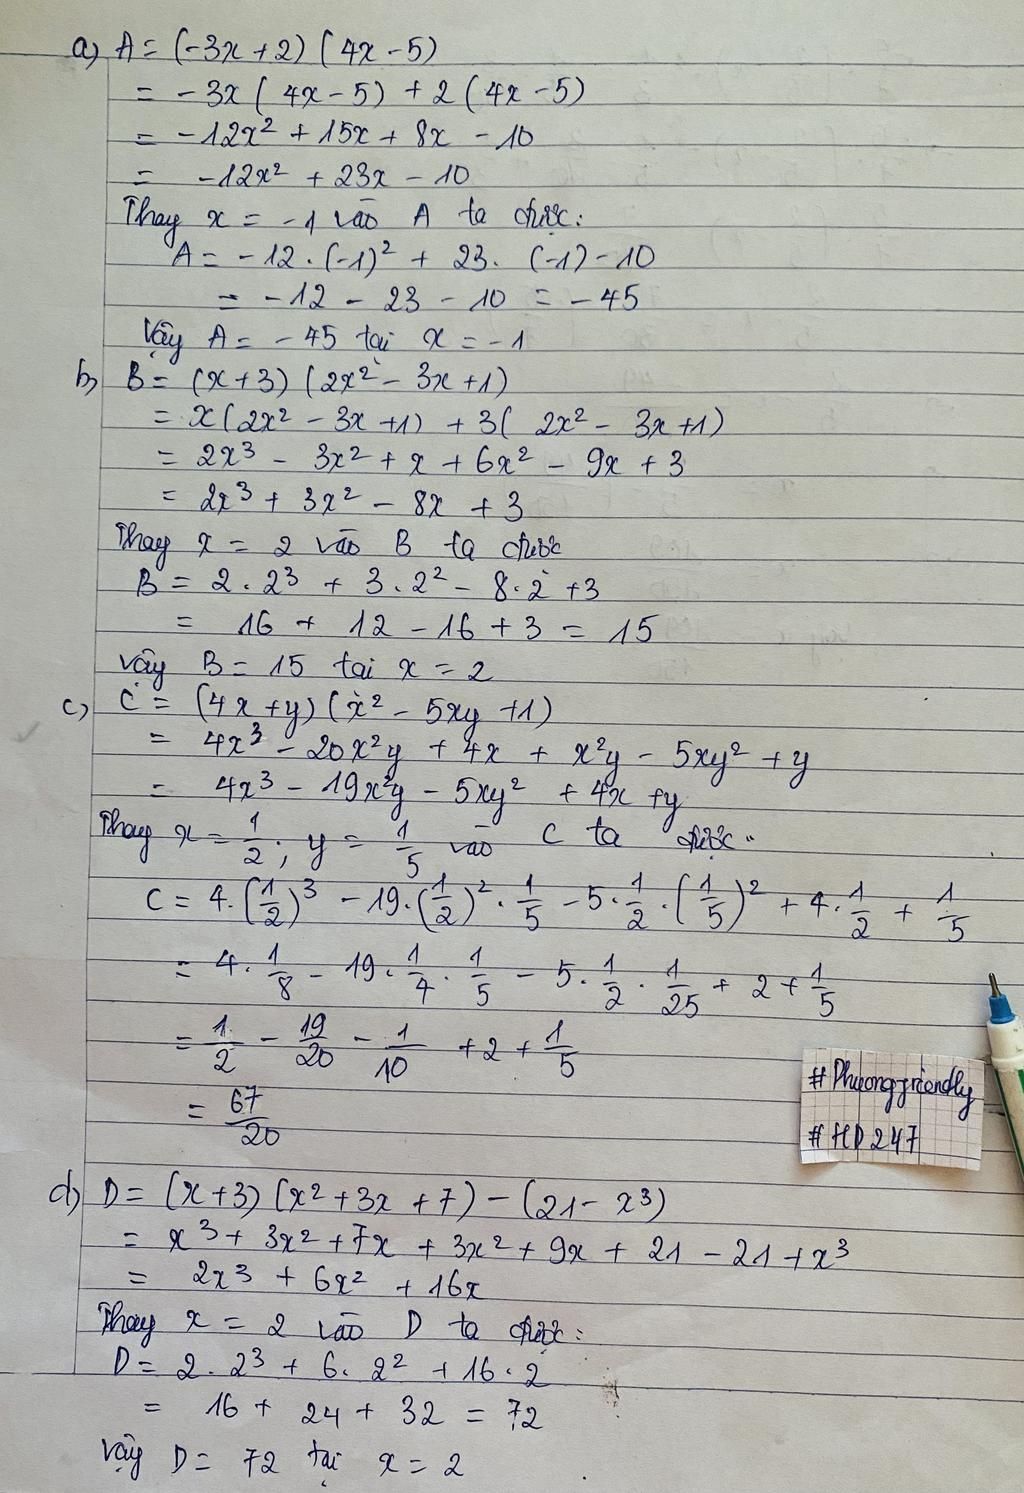 a) A = (-3x + 2) (4x - 5)
= - 3x ( 4x - 5) + 2 (4x - 5)
= - 12x² + 15x + 8x - 10
= -12x² + 23x - 10
Thay x = -1 vào A ta được:
A = - 12 . (-1)² + 23. (-1) - 10
= - 12 - 23 - 10 = - 45
Vậy A = - 45 tại x = - 1
b) B = (x + 3) (2x² - 3x + 1)
= x(2x² - 3x + 1) + 3( 2x² - 3x + 1)
= 2x³ - 3x² + x + 6x² - 9x + 3
= 2x³ + 3x² - 8x + 3
Thay x = 2 vào B ta được
B = 2 . 2³ + 3 . 2² - 8 . 2 + 3
= 16 + 12 - 16 + 3 = 15
vậy B = 15 tại x = 2
c) C = (4x + y) (x² - 5xy + 1)
= 4x³ - 20x²y + 4x + x²y - 5xy² + y
= 4x³ - 19x²y - 5xy² + 4x + y
Thay x = 1/2 ; y = 1/5 vào C ta được:
C = 4. (1/2)³ - 19. (1/2)² . 1/5 - 5 . 1/2 . (1/5)² + 4 . 1/2 + 1/5
= 4. 1/8 - 19 . 1/4 . 1/5 - 5 . 1/2 . 1/25 + 2 + 1/5
= 1/2 - 19/20 - 1/10 + 2 + 1/5
= 67/20
#Phuongfriendly
#HD247
d) D = (x + 3) (x² + 3x + 7) - (21 - x³)
= x³ + 3x² + 7x + 3x² + 9x + 21 - 21 + x³
= 2x³ + 6x² + 16x
Thay x = 2 vào D ta được:
D = 2 . 2³ + 6 . 2² + 16 . 2
= 16 + 24 + 32 = 72
vậy D = 72 tại x = 2